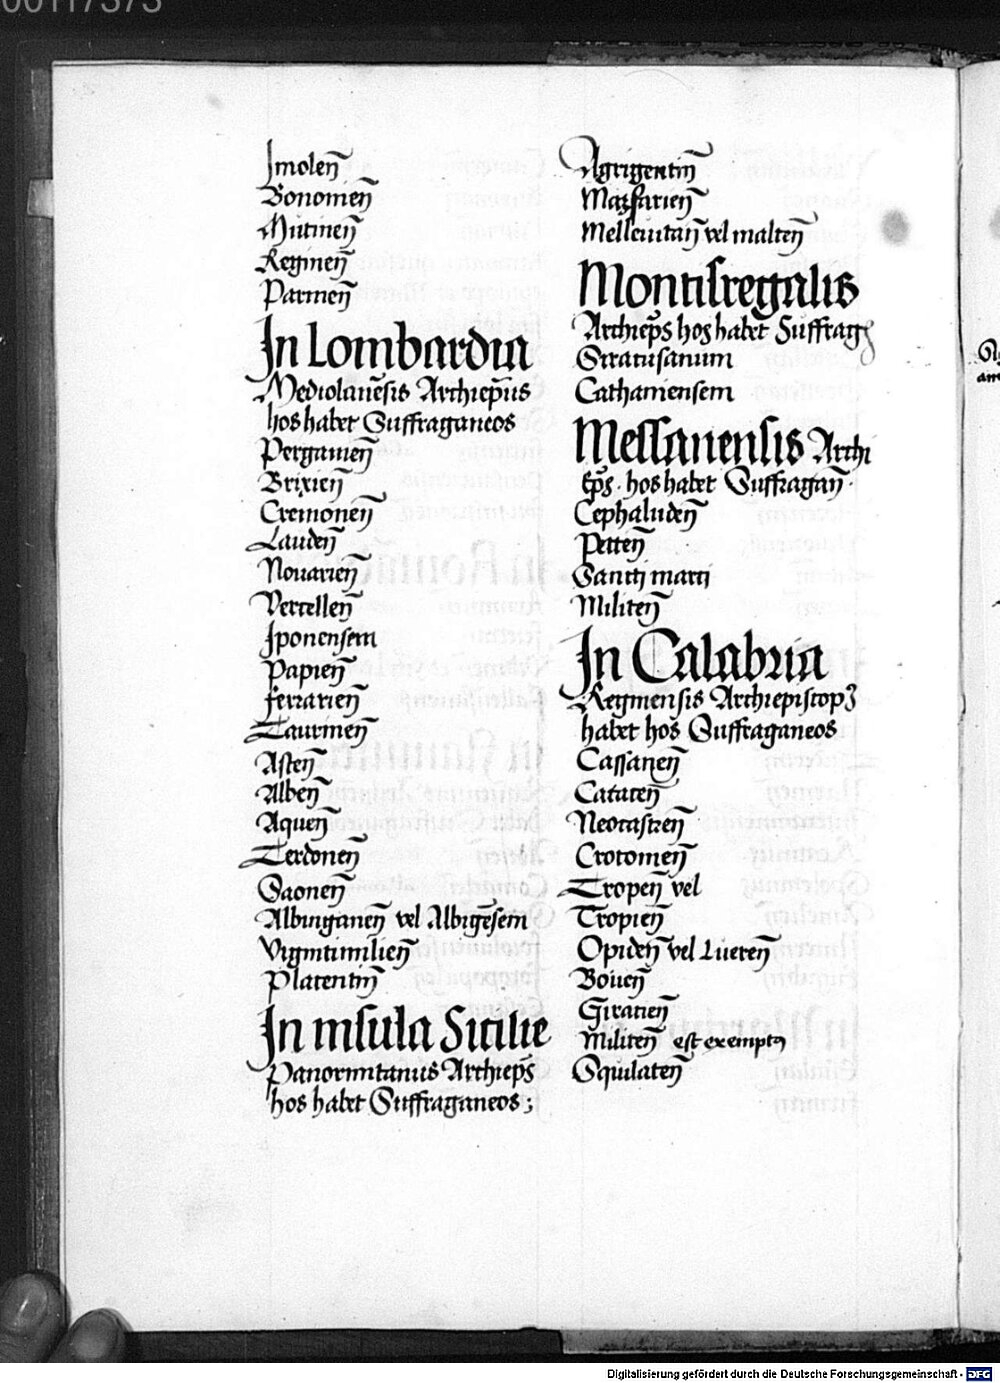 Imoleñ
Bonomeñ
Mutineñ
Regineñ
Parmeñ
In Lombardia
Mediolanẽsis Archiep̃us
hos habet Suffraganeos
Pergameñ
Brixieñ
Cremoneñ
Laudeñ
Nouarieñ
Vercelleñ
Iponensem
Papieñ
Ferrarieñ
Taurineñ
Asteñ
Albeñ
Aqueñ
Terdoneñ
Saoneñ
Albinganeñ vel Albigẽsem
Vigintimilieñ
Placentiñ
In insula Sicilie
Panormitanus Archiep̃s
hos habet Suffraganeos;
Agrigentiñ
Mazsarieñ
Melleuitañ vel malteñ
Montisregalis
Archiep̃s hos habet Suffrag
Siracusanum
Cathaniensem
Messanensis Archi
ep̃s · hos habet Suffragañ ·
Cephaludeñ
Petteñ
Sancti marci
Militeñ
In Calabria
Reginensis Archiepiscopꝫ
habet hos Suffraganeos
Cassaneñ
Catateñ
Neocastreñ
Crotoineñ
Tropeñ vel
Tropieñ
Opideñ vel Luereñ
Boueñ
Giracieñ
Militeñ est exemptꝰ
Squilateñ
Digitalisierung gefördert durch die Deutsche Forschungsgemeinschaft - DFG